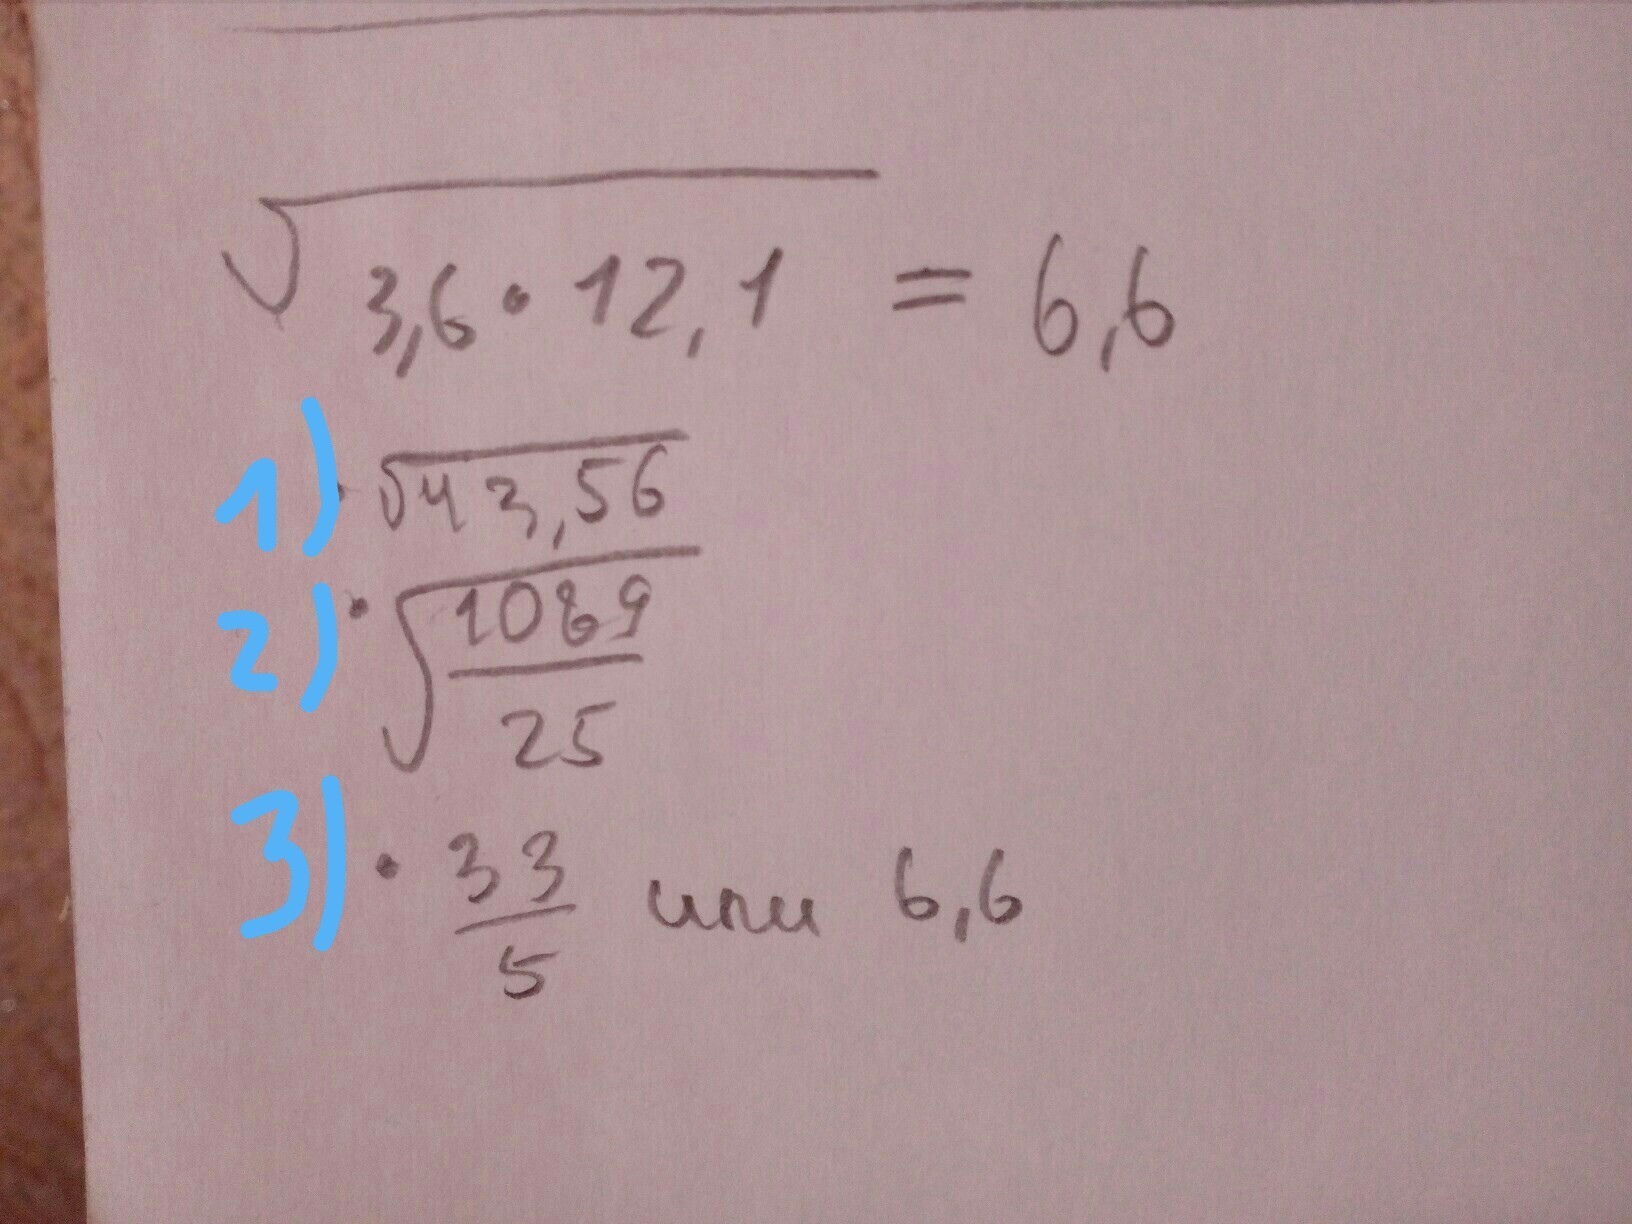 √3,6 • 12,1 = 6,6
1) • √43,56
2) • √1089/25
3) • 33/5 или 6,6